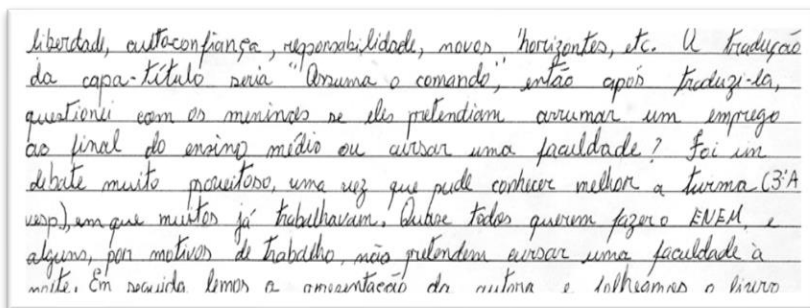 liberdade, autoconfiança, responsabilidade, novos horizontes, etc. A tradução
da capa-título seria "Assuma o comando", então após traduzi-la,
questionei com os meninos se eles pretendiam arrumar um emprego
ao final do ensino médio ou cursar uma faculdade? Foi um
debate muito proveitoso, uma vez que pude conhecer melhor a turma (3ºA
vesp), em que muitos já trabalhavam. Quase todos querem fazer o ENEM, e
alguns, por motivos de trabalho, não pretendem cursar uma faculdade à
noite. Em seguida lemos a apresentação da autora e folheamos o livro